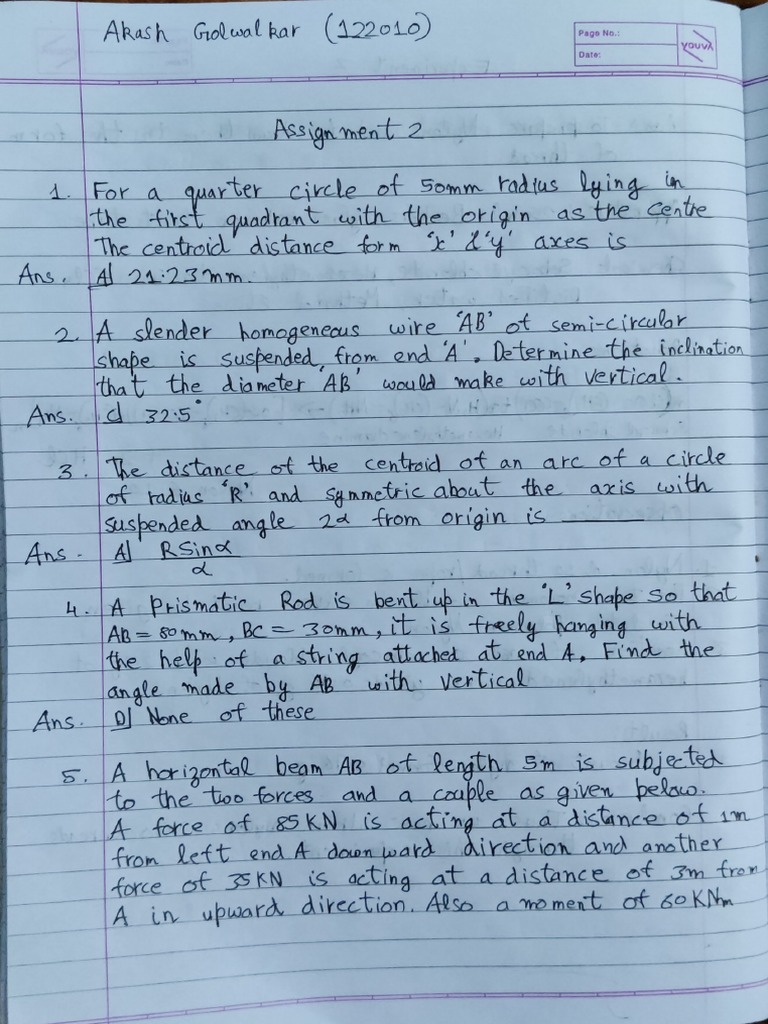 Akash Golwalkar (122010)
Page No.:
Date:
YOUVA
Assignment 2
1. For a quarter circle of 50mm radius lying in
the first quadrant with the origin as the centre
The centroid distance form 'x' & 'y' axes is
Ans. A) 21.23mm.
2. A slender homogeneous wire 'AB' of semi-circular
shape is suspended, from end 'A'. Determine the inclination
that the diameter 'AB' would make with vertical.
Ans. c) 32.5°
3. The distance of the centroid of an arc of a circle
of radius 'R' and symmetric about the axis with
suspended angle 2α from origin is ______
Ans. A) RSinα
α
4. A Prismatic Rod is bent up in the 'L' shape so that
AB = 80mm, BC = 30mm, it is freely hanging with
the help of a string attached at end A. Find the
angle made by AB with vertical
Ans. D) None of these
5. A horizontal beam AB of length 5m is subjected
to the two forces and a couple as given below.
A force of 85KN is acting at a distance of 1m
from left end A downward direction and another
force of 35KN is acting at a distance of 3m from
A in upward direction. Also a moment of 60KNm